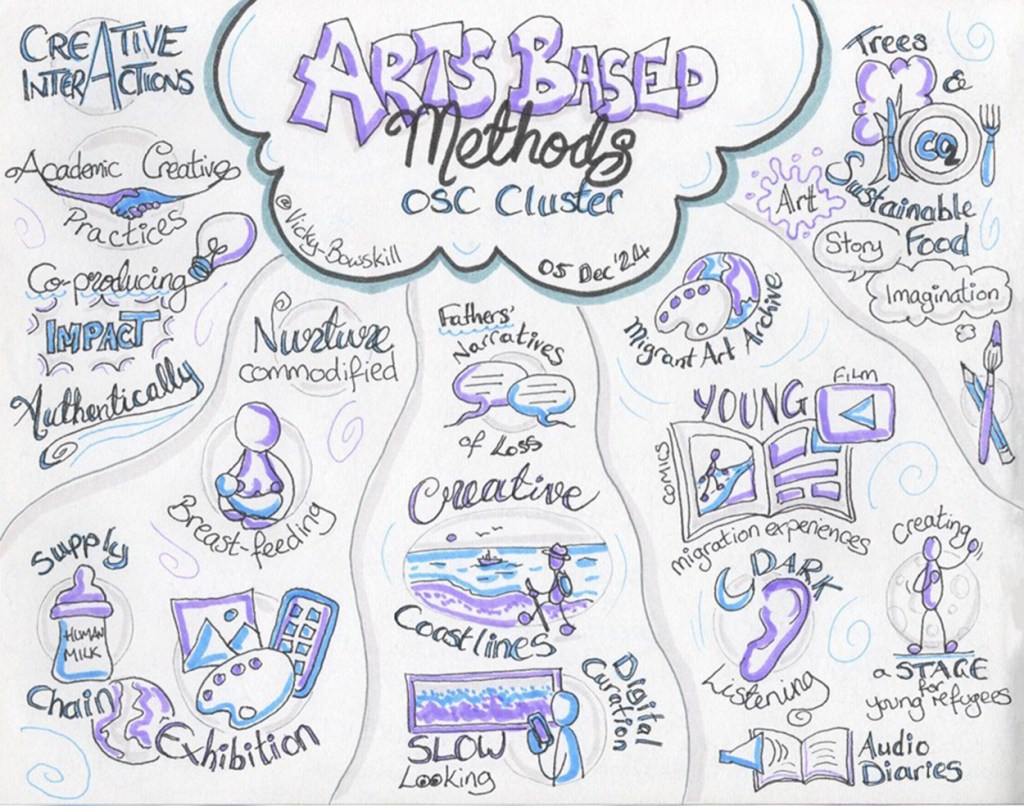 CREATIVE
INTERACTIONS
Academic Creative
Practices
Co-producing
IMPACT
Authentically
ARTS BASED
Methods
OSC Cluster
@Vicky-Bowskill
05 Dec '24
Trees
&
CO2
Sustainable
Food
Art
Story
Imagination
Nurture
commodified
Breast-feeding
Supply
HUMAN
MILK
Chain
Exhibition
Fathers'
Narratives
of Loss
Creative
Coastlines
SLOW
Looking
Digital
Curation
Migrant Art Archive
YOUNG
FILM
COMICS
migration experiences
DARK
Listening
Creating
a STAGE
for
young refugees
Audio
Diaries